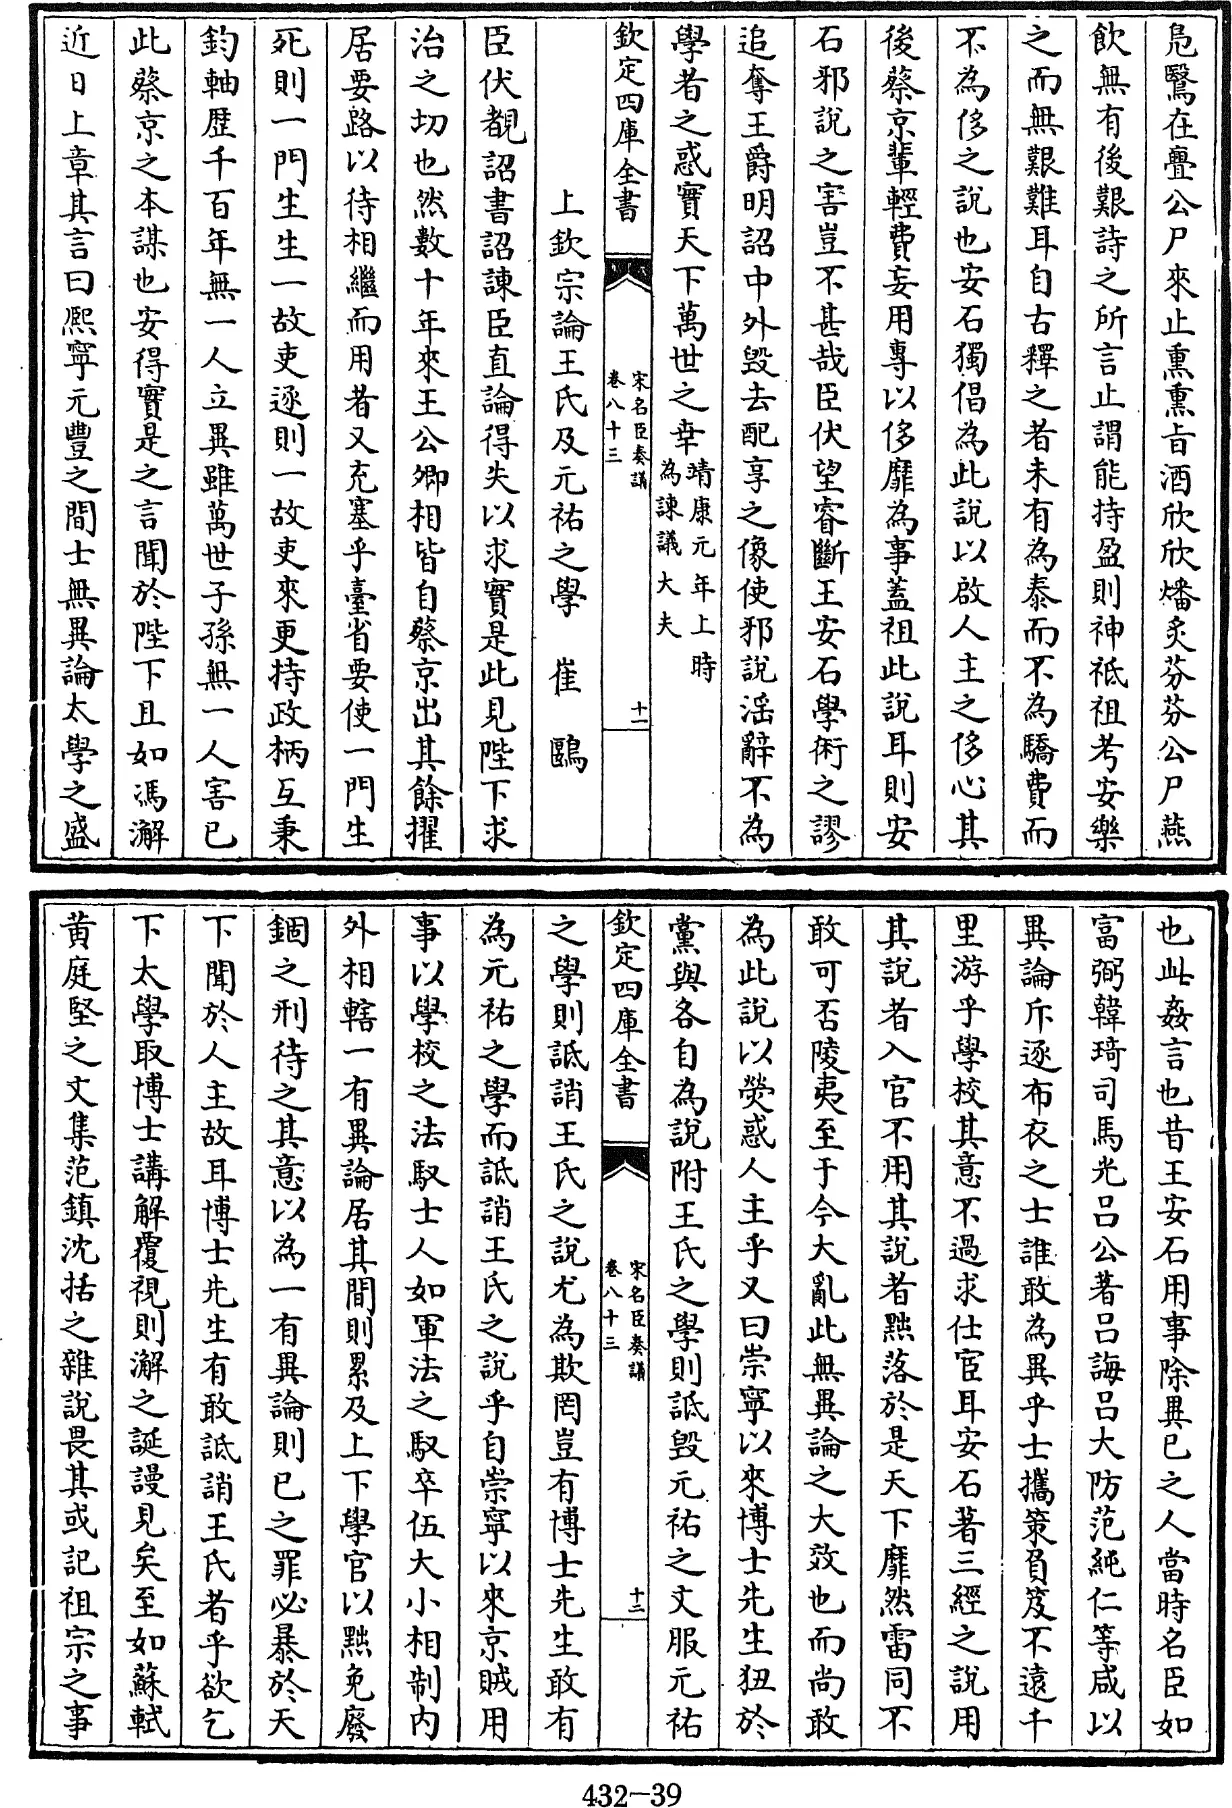 鳧鷖在亹公尸來止熏熏旨酒欣欣燔炙芬芬公尸燕
飲無有後艱詩之所言止謂能持盈則神祗祖考安樂
之而無艱難耳自古釋之者未有為泰而不為驕費而
不為侈之說也安石獨倡為此說以啟人主之侈心其
後蔡京輩輕費妄用專以侈靡為事蓋祖此說耳則安
石邪說之害豈不甚哉臣伏望睿斷王安石學術之謬
追奪王爵明詔中外毀去配享之像使邪說淫辭不為
學者之惑實天下萬世之幸靖康元年上時為諫議大夫
欽定四庫全書
宋名臣奏議
卷八十三
十一
上欽宗論王氏及元祐之學 崔鶠
臣伏覩詔書詔諫臣直論得失以求實是此見陛下求
治之切也然數十年來王公卿相皆自蔡京出其餘擢
居要路以待相繼而用者又充塞乎臺省要使一門生
死則一門生生一故吏逐則一故吏來更持政柄互秉
鈞軸歷千百年無一人立異雖萬世子孫無一人害已
此蔡京之本謀也安得實是之言聞於陛下且如馮澥
近日上章其言曰熙寧元豐之間士無異論太學之盛
也此姦言也昔王安石用事除異已之人當時名臣如
富弼韓琦司馬光呂公著呂誨呂大防范純仁等咸以
異論斥逐布衣之士誰敢為異乎士攜策負笈不遠千
里游乎學校其意不過求仕宦耳安石著三經之說用
其說者入官不用其說者黜落於是天下靡然雷同不
敢可否陵夷至于今大亂此無異論之大效也而尚敢
為此說以熒惑人主乎又曰崇寧以來博士先生狃於
黨與各自為說附王氏之學則詆毀元祐之文服元祐
欽定四庫全書
宋名臣奏議
卷八十三
十二
之學則詆誚王氏之說尤為欺罔豈有博士先生敢有
為元祐之學而詆誚王氏之說乎自崇寧以來京賊用
事以學校之法馭士人如軍法之馭卒伍大小相制內
外相轄一有異論居其間則累及上下學官以黜免廢
錮之刑待之其意以為一有異論則已之罪必暴於天
下聞於人主故耳博士先生有敢詆誚王氏者乎欲乞
下太學取博士講解覆視則澥之誕謾見矣至如蘇軾
黃庭堅之文集范鎮沈括之雜說畏其或記祖宗之事
432-39